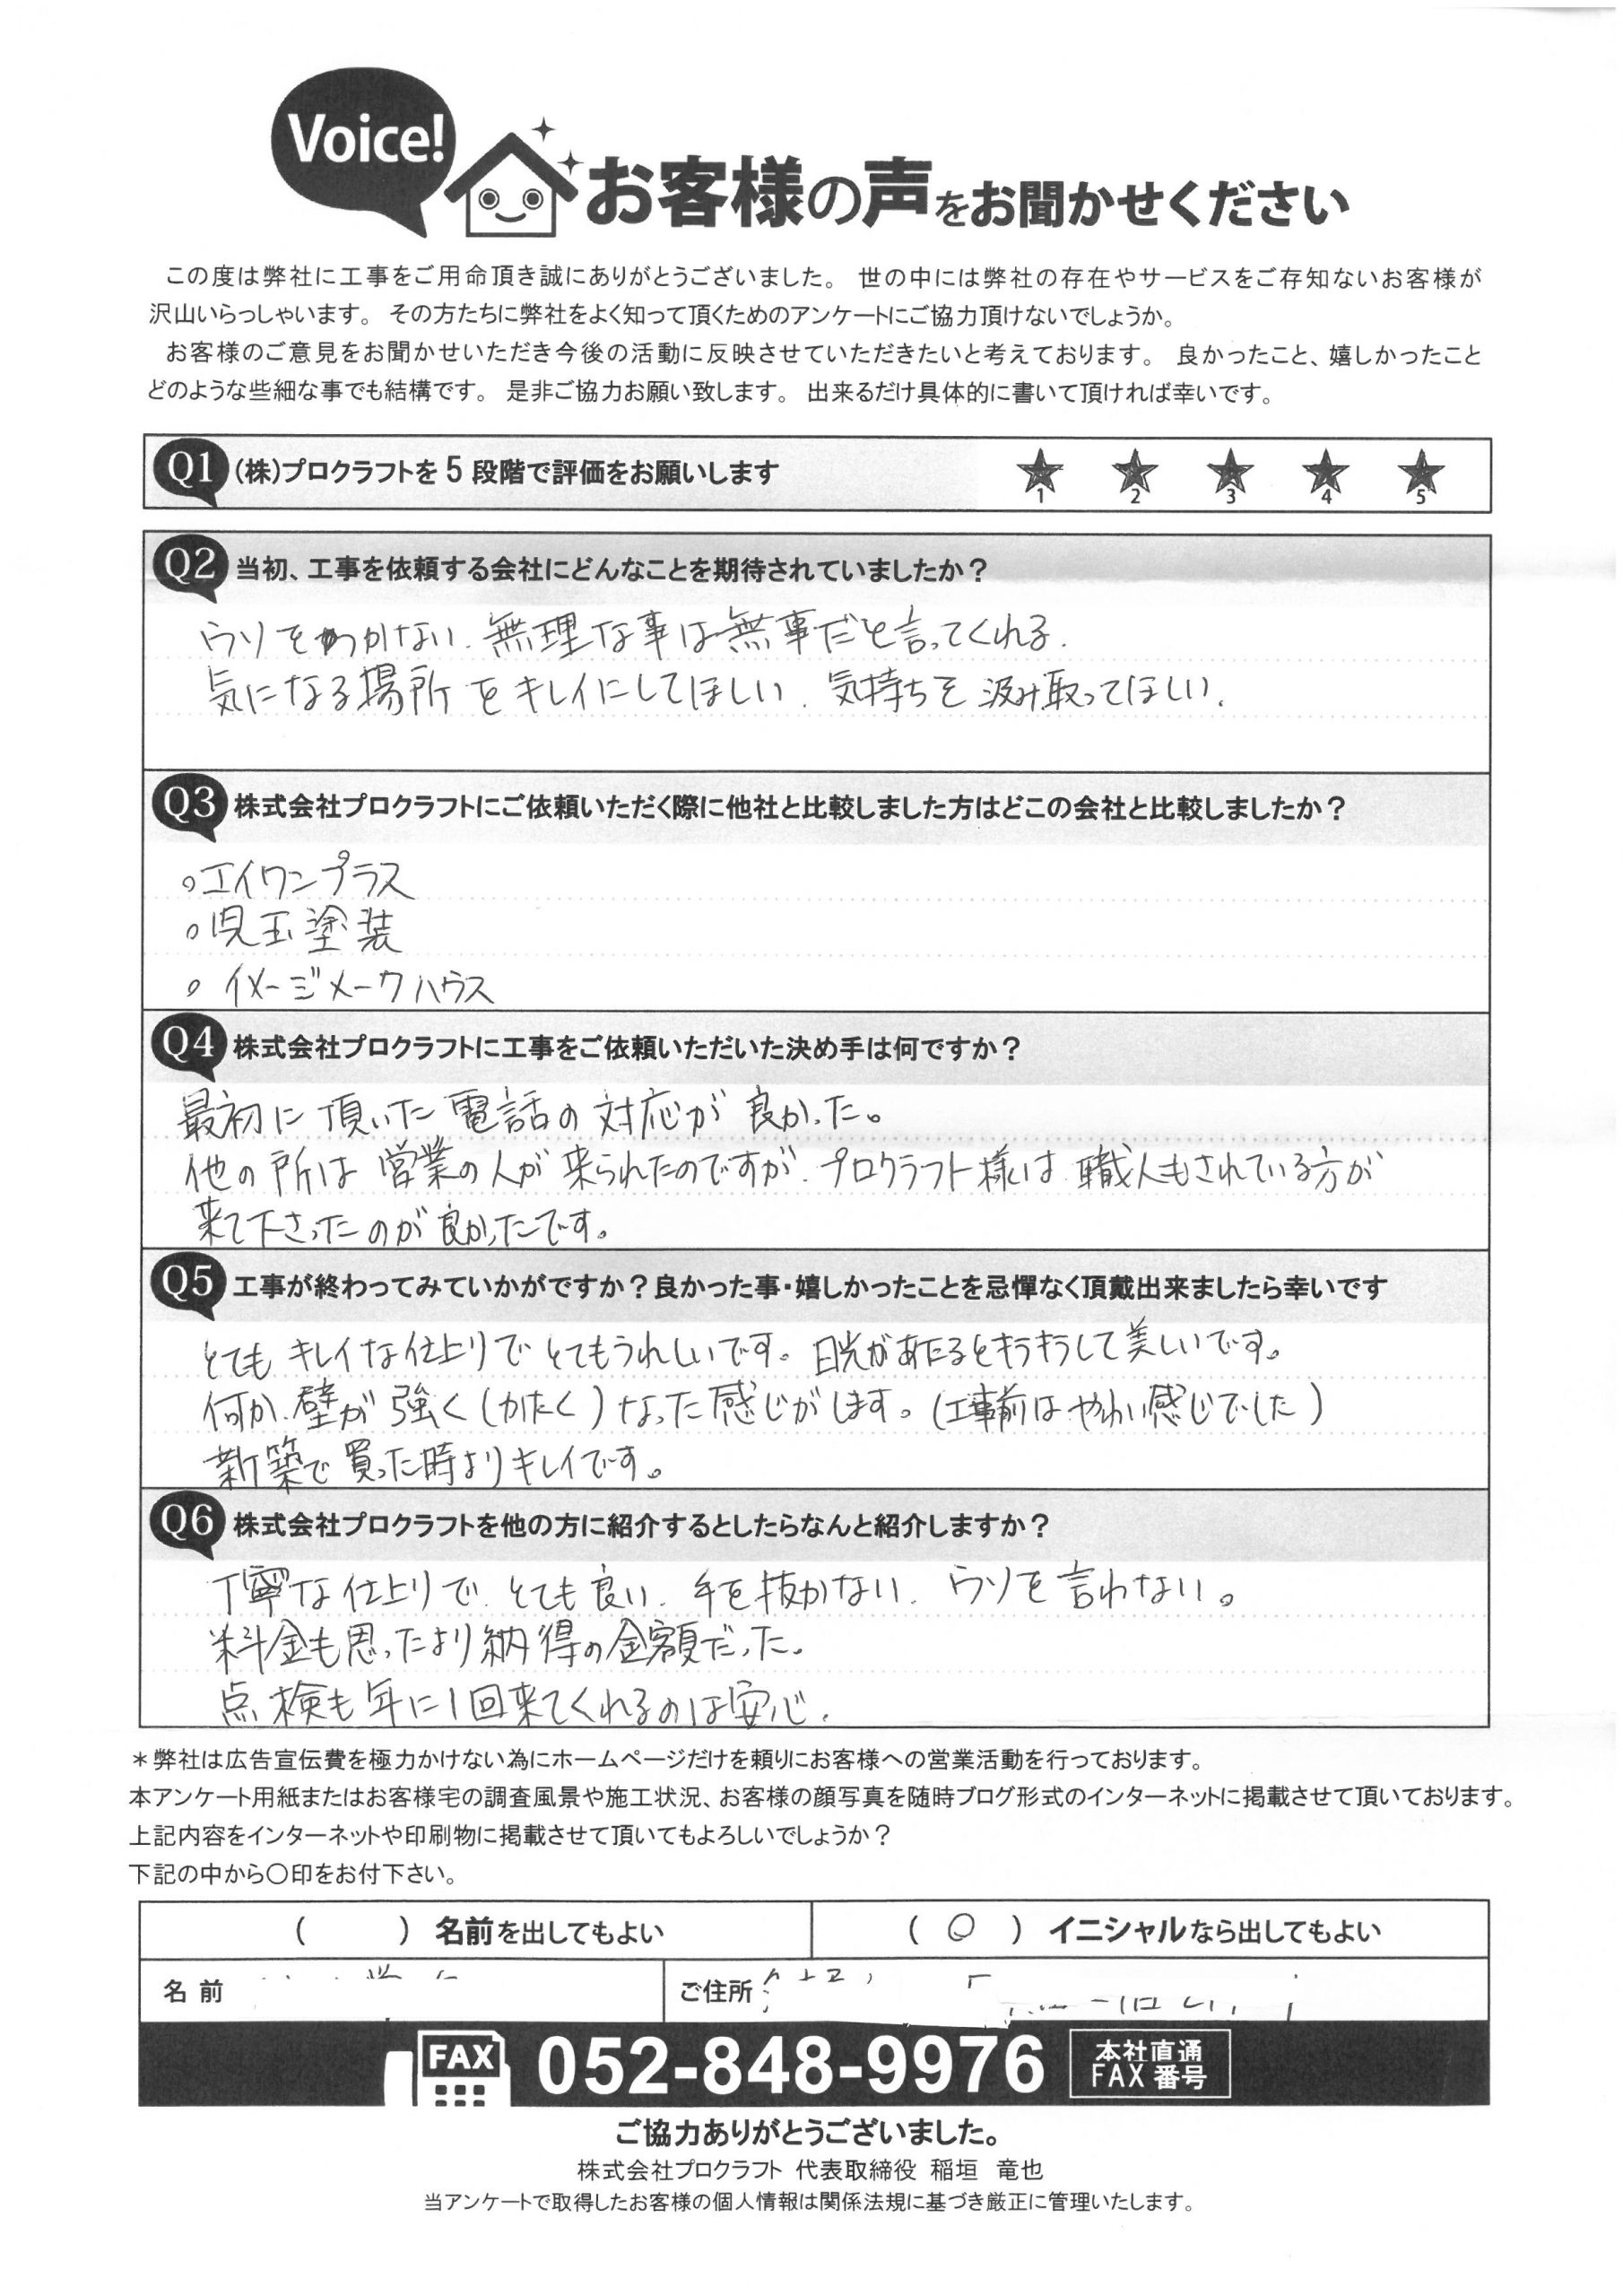 Voice!
お客様の声をお聞かせください
この度は弊社に工事をご用命頂き誠にありがとうございました。 世の中には弊社の存在やサービスをご存知ないお客様が
沢山いらっしゃいます。 その方たちに弊社をよく知って頂くためのアンケートにご協力頂けないでしょうか。
お客様のご意見をお聞かせいただき今後の活動に反映させていただきたいと考えております。 良かったこと、嬉しかったこと
どのような些細な事でも結構です。 是非ご協力お願い致します。 出来るだけ具体的に書いて頂ければ幸いです。
Q1 (株)プロクラフトを5段階で評価をお願いします ★1 ★2 ★3 ★4 ★5
Q2 当初、工事を依頼する会社にどんなことを期待されていましたか？
ウソをつかない、無理な事は無事だと言ってくれる、
気になる場所をキレイにしてほしい、気持ちを汲み取ってほしい、
Q3 株式会社プロクラフトにご依頼いただく際に他社と比較しました方はどこの会社と比較しましたか？
○エイワンプラス
○児玉塗装
○イメージメークハウス
Q4 株式会社プロクラフトに工事をご依頼いただいた決め手は何ですか？
最初に頂いた電話の対応が良かった。
他の所は営業の人が来られたのですが、プロクラフト様は職人もされている方が
来て下さったのが良かったです。
Q5 工事が終わってみていかがですか？良かった事・嬉しかったことを忌憚なく頂戴出来ましたら幸いです
とてもキレイな仕上りでとてもうれしいです。日光があたるとキラキラして美しいです。
何か、壁が強く(かたく)なった感じがします。(工事前はやわい感じでした)
新築で買った時よりキレイです。
Q6 株式会社プロクラフトを他の方に紹介するとしたらなんと紹介しますか？
丁寧な仕上りで、とても良い、手を抜かない、ウソを言わない。
料金も思ったより納得の金額だった。
点検も年に1回来てくれるのは安心、
＊弊社は広告宣伝費を極力かけない為にホームページだけを頼りにお客様への営業活動を行っております。
本アンケート用紙またはお客様宅の調査風景や施工状況、お客様の顔写真を随時ブログ形式のインターネットに掲載させて頂いております。
上記内容をインターネットや印刷物に掲載させて頂いてもよろしいでしょうか？
下記の中から〇印をお付下さい。
( ) 名前を出してもよい (○) イニシャルなら出してもよい
名前 ご住所
FAX 052-848-9976 本社直通 FAX番号
ご協力ありがとうございました。
株式会社プロクラフト 代表取締役 稲垣 竜也
当アンケートで取得したお客様の個人情報は関係法規に基づき厳正に管理いたします。